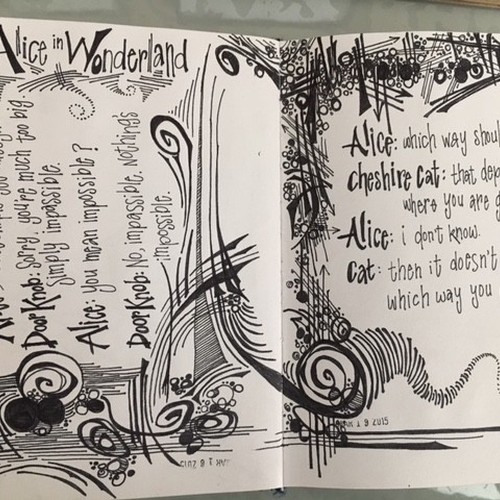 Alice in Wonderland
Door Knob: Sorry, you're much too big
Simply impossible.
Alice: you mean impossible?
Door Knob: No, impassible. Nothings
impossible.
Alice: which way shoul
cheshire cat: that dep
where you are g
Alice: i don't know.
cat: then it doesn't
which way you
JAN 1 8 2015
1 9 2015